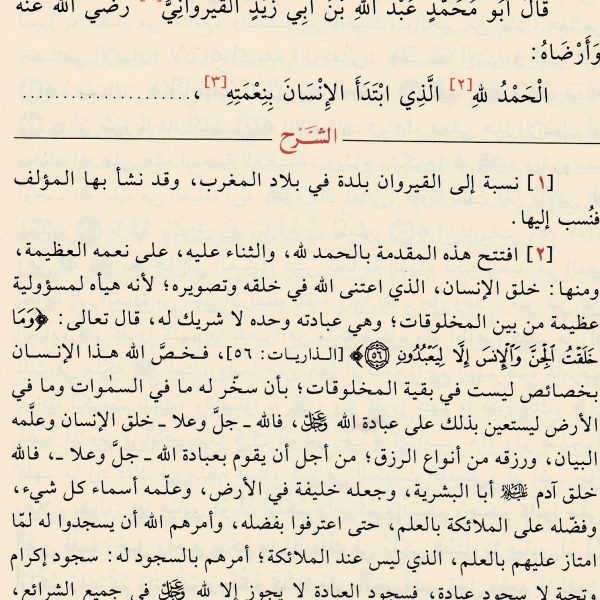 قَالَ أَبُو مُحَمَّدٍ عَبْدُ اللهِ بْنُ أَبِي زَيْدٍ القَيْرَوَانِيُّ رَضِيَ اللهُ عَنْهُ
وَأَرْضَاهُ:
الْحَمْدُ للهِ[٢] الَّذِي ابْتَدَأَ الإِنْسَانَ بِنِعْمَتِهِ[٣]، ......................
الشَّرْح
[١] نسبة إلى القيروان بلدة في بلاد المغرب، وقد نشأ بها المؤلف
فنُسب إليها.
[٢] افتتح هذه المقدمة بالحمد لله، والثناء عليه، على نعمه العظيمة،
ومنها: خلق الإنسان، الذي اعتنى الله في خلقه وتصويره؛ لأنه هيأه لمسؤولية
عظيمة من بين المخلوقات؛ وهي عبادته وحده لا شريك له، قال تعالى: ﴿وَمَا
خَلَقْتُ ٱلْجِنَّ وَٱلْإِنسَ إِلَّا لِيَعْبُدُونِ ۝٥٦﴾ [الذاريات: ٥٦]، فخصَّ الله هذا الإنسان
بخصائص ليست في بقية المخلوقات؛ بأن سخّر له ما في السمٰوات وما في
الأرض ليستعين بذلك على عبادة الله عَزَّوَجَلَّ، فالله ـ جلَّ وعلا ـ خلق الإنسان وعلَّمه
البيان، ورزقه من أنواع الرزق؛ من أجل أن يقوم بعبادة الله ـ جلَّ وعلا ـ، فالله
خلق آدم عَلَيْهِ السَّلَام أبا البشرية، وجعله خليفة في الأرض، وعلّمه أسماء كل شيء،
وفضّله على الملائكة بالعلم، حتى اعترفوا بفضله، وأمرهم الله أن يسجدوا له لمّا
امتاز عليهم بالعلم، الذي ليس عند الملائكة؛ أمرهم بالسجود له: سجود إكرام
وتحية لا سجود عبادة، فسجود العبادة لا يجوز إلا لله عَزَّوَجَلَّ في جميع الشرائع،